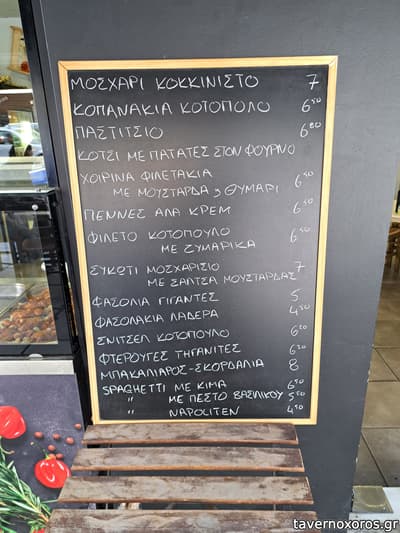 ΜΟΣΧΑΡΙ ΚΟΚΚΙΝΙΣΤΟ 7
ΚΟΠΑΝΑΚΙΑ ΚΟΤΟΠΟΛΟ 6⁵⁰
ΠΑΣΤΙΤΣΙΟ 6⁸⁰
ΚΟΤΣΙ ΜΕ ΠΑΤΑΤΕΣ ΣΤΟΝ ΦΟΥΡΝΟ
ΧΟΙΡΙΝΑ ΦΙΛΕΤΑΚΙΑ 6⁵⁰
ΜΕ ΜΟΥΣΤΑΡΔΑ & ΘΥΜΑΡΙ
ΠΕΝΝΕΣ ΑΛΑ ΚΡΕΜ 6⁵⁰
ΦΙΛΕΤΟ ΚΟΤΟΠΟΥΛΟ 6⁵⁰
ΜΕ ΖΥΜΑΡΙΚΑ
ΣΥΚΩΤΙ ΜΟΣΧΑΡΙΣΙΟ 7
ΜΕ ΣΑΛΤΣΑ ΜΟΥΣΤΑΡΔΑΣ
ΦΑΣΟΛΙΑ ΓΙΓΑΝΤΕΣ 5
ΦΑΣΟΛΑΚΙΑ ΛΑΔΕΡΑ 4⁵⁰
ΣΝΙΤΣΕΛ ΚΟΤΟΠΟΥΛΟ
ΦΤΕΡΟΥΓΕΣ ΤΗΓΑΝΙΤΕΣ
ΜΠΑΚΑΛΙΑΡΟΣ-ΣΚΟΡΔΑΛΙΑ 8
SPAGHETTI ΜΕ ΚΙΜΑ 6⁵⁰
" ΜΕ ΠΕΣΤΟ ΒΑΣΙΛΙΚΟΥ 5⁵⁰
" NAPOLITEN 4⁵⁰
tavernoxoros.gr